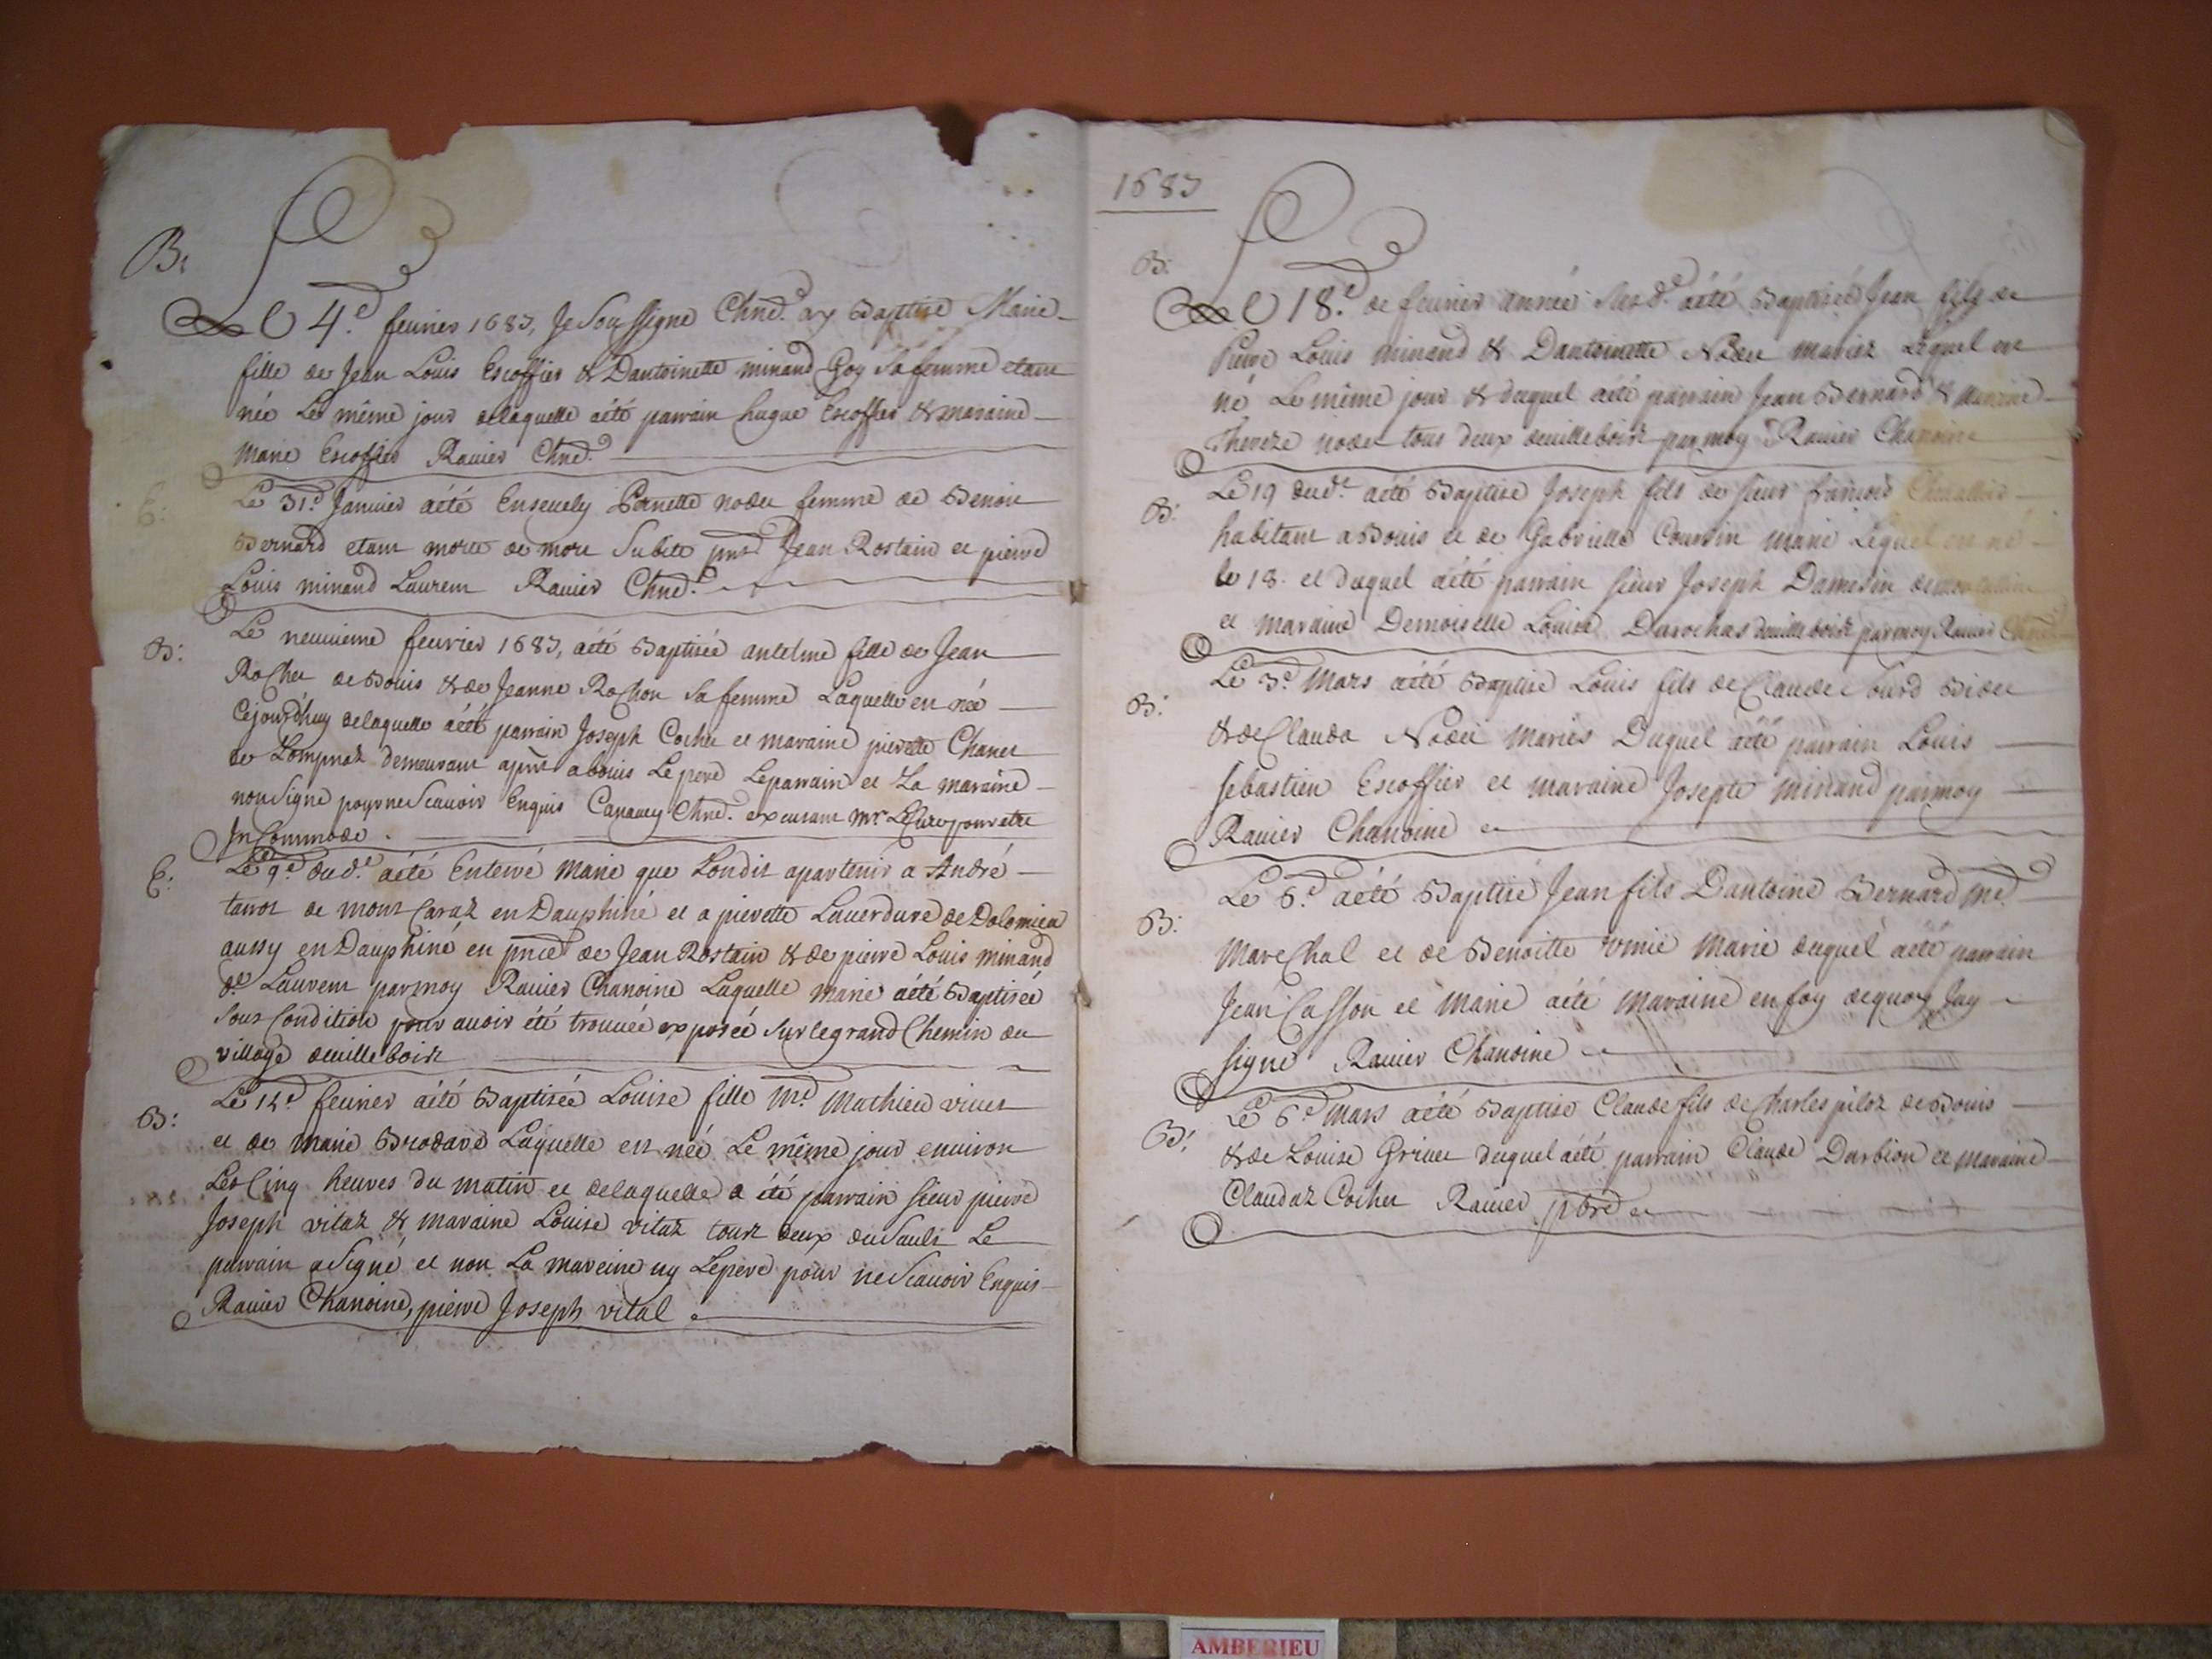 B:
Le 4.e feurier 1683, Je Soussigne Chne. ay Baptise Marie
fille de Jean Louis Escoffier & Dantoinette minand Goy Sa femme etant
née Le même jour delaquelle aété parrain hugue Escoffier & maraine
Marie Escoffier Rauier Chne.
E:
Le 31.e Januier aété Enseuely Pernette nodet femme de Benoit
Bernard etant morte de mort Subite Jean Rostain et pierre
Louis minand Laurent Rauier Chne.
B:
Le neuuieme feurier 1683, aété Baptisée antelme fille de Jean
Rochet de Bouis & de Jeanne Rochon Sa femme Laquelle est née
Cejourdhuy delaquelle aété parrain Joseph Cochet et maraine pierette Chanet
de Lompnaz demeurant abouis Lepere Leparrain et La maraine
non Signe pour ne Scauoir Enquis Chne. excusant Mr. LeCuré pour etre
InCommode.
E:
Le 9.e dud.t aété Enterré Marie que Londit apartenir a André
de mont Caraz en Dauphiné et a pierette Lauerdure de Dolomieu
aussy en Dauphiné en de Jean Rostain & de pierre Louis minand
d.t Laurent parmoy Rauier Chanoine Laquelle marie aété Baptisée
Sous Condition pour auoir été trouuée exposée Sur le grand Chemin du
village deuilleboist
B:
Le 12.e feurier aété Baptisée Louise fille M.e Mathieu viuet
et de Marie Brodard Laquelle est née Le même jour enuiron
Les Cinq heures du matin et delaquelle a été parrain sieur pierre
Joseph vitaz & maraine Louise vitaz tous deux duSault Le
parrain a Signé et non La mareine ny Lepere pour ne Scauoir Enquis
Rauier Chanoine, pierre Joseph vital
1683
B:
Le 18.e de feurier année Susd.e aété Baptisé Jean fils de
Pierre Louis minand & Dantoinette Nodet mariez Lequel est
né Le même jour & duquel aété parrain Jean Bernard & maraine
Thereze nodet tous deux deuilleboist parmoy Rauier Chanoine
B:
Le 19 dud.t aété Baptise Joseph fils de sieur francois Cheuallier
habitant aBouis et de Gabrielle Coursin marié Lequel est né
le 18. et duquel aété parrain sieur Joseph Damesin
et maraine Demoiselle Louise Darochas deuilleboist parmoy Rauier Chne.
B:
Le 3.e Mars aété Baptise Louis fils de Claude Bidet
& de Clauda Nodet Mariés Duquel aété parrain Louis
sebastien Escoffier et maraine Josepte minand parmoy
Rauier Chanoine
B:
Le 6.e aété Baptisé Jean fils Dantoine Bernard M.e
Marechal et de Benoitte Marie duquel aété parrain
Jean Casson et Marie aété Maraine en foy dequoy Jay
signé Rauier Chanoine
B:
Le 6.e Mars aété Baptise Claude fils de Charles piloz de Bouis
& de Louise Griuet duquel aété parrain Claude Darbion et maraine
Claudaz Cochet Rauier pbre
AMBERIEU